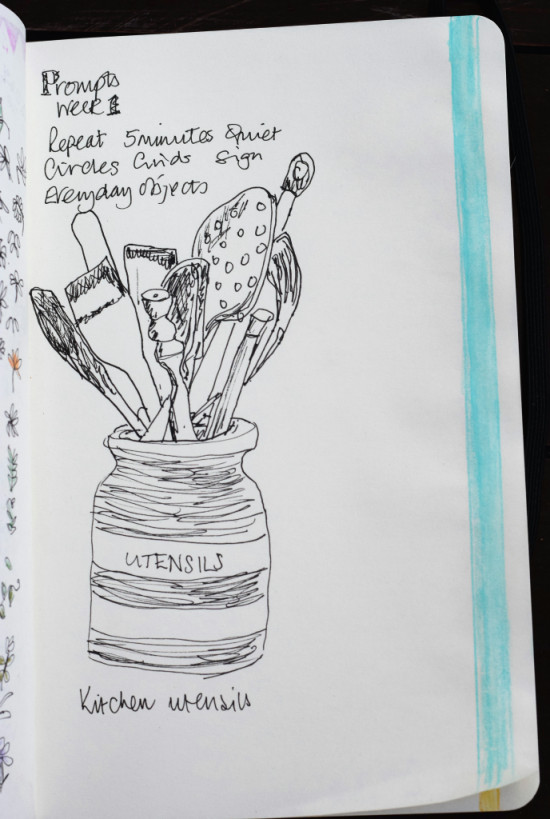 Prompts
week 1
Repeat 5 minutes Quiet
Circles Sign
Everyday objects
UTENSILS
Kitchen utensils